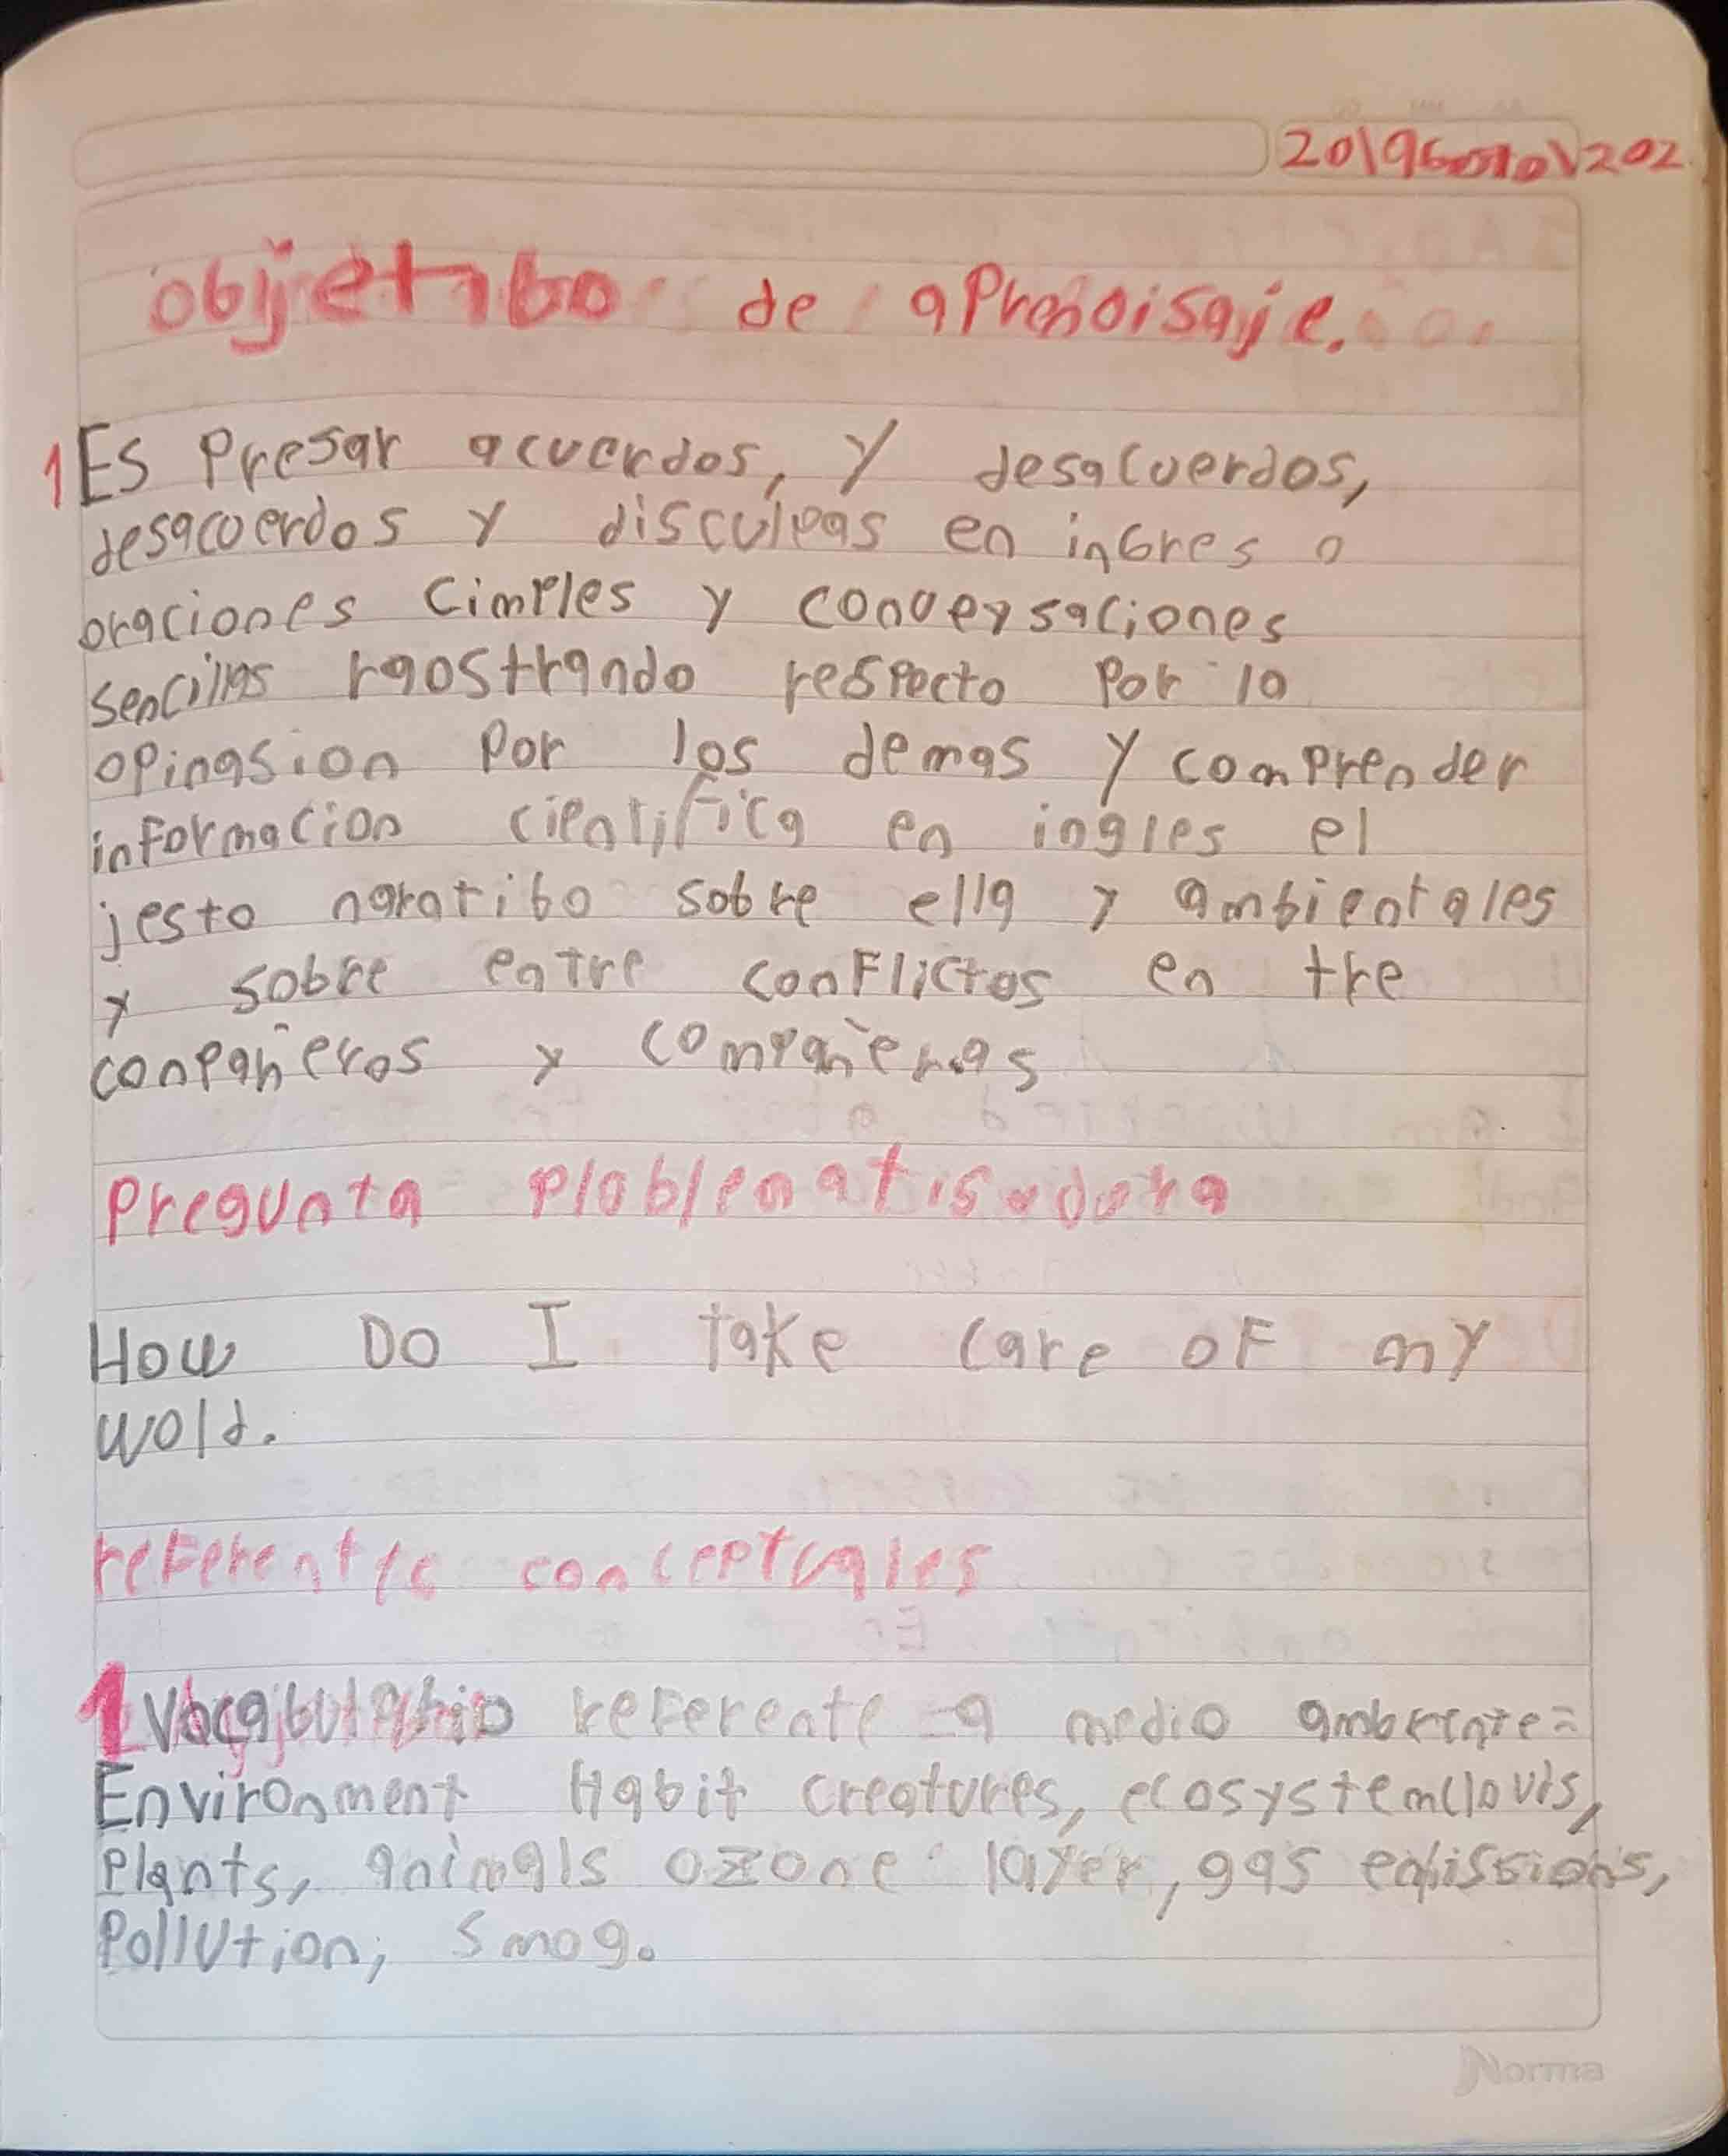 20\agosto\202
objetibo de aprendisaje.
1 Es Presar acuerdos, y desacuerdos,
desacuerdos y disculpas en ingres o
oraciones cimples y conversaciones
sencillas mostrando respecto por la
opinasion por los demas y comprender
informacion cientifica en ingles el
jesto naratibo sobre ella y ambientales
y sobre entre conflictos en tre
conpañeros y compañeras
Pregunta ploblematisadora
How Do I take care of my
wold.
referentes conceptuales
1 Vocabulario referente a medio ambiente=
Environment Habit creatures, ecosystem clouds,
Plants, animals ozone layer, gas emissions,
Pollution, smog.
Norma